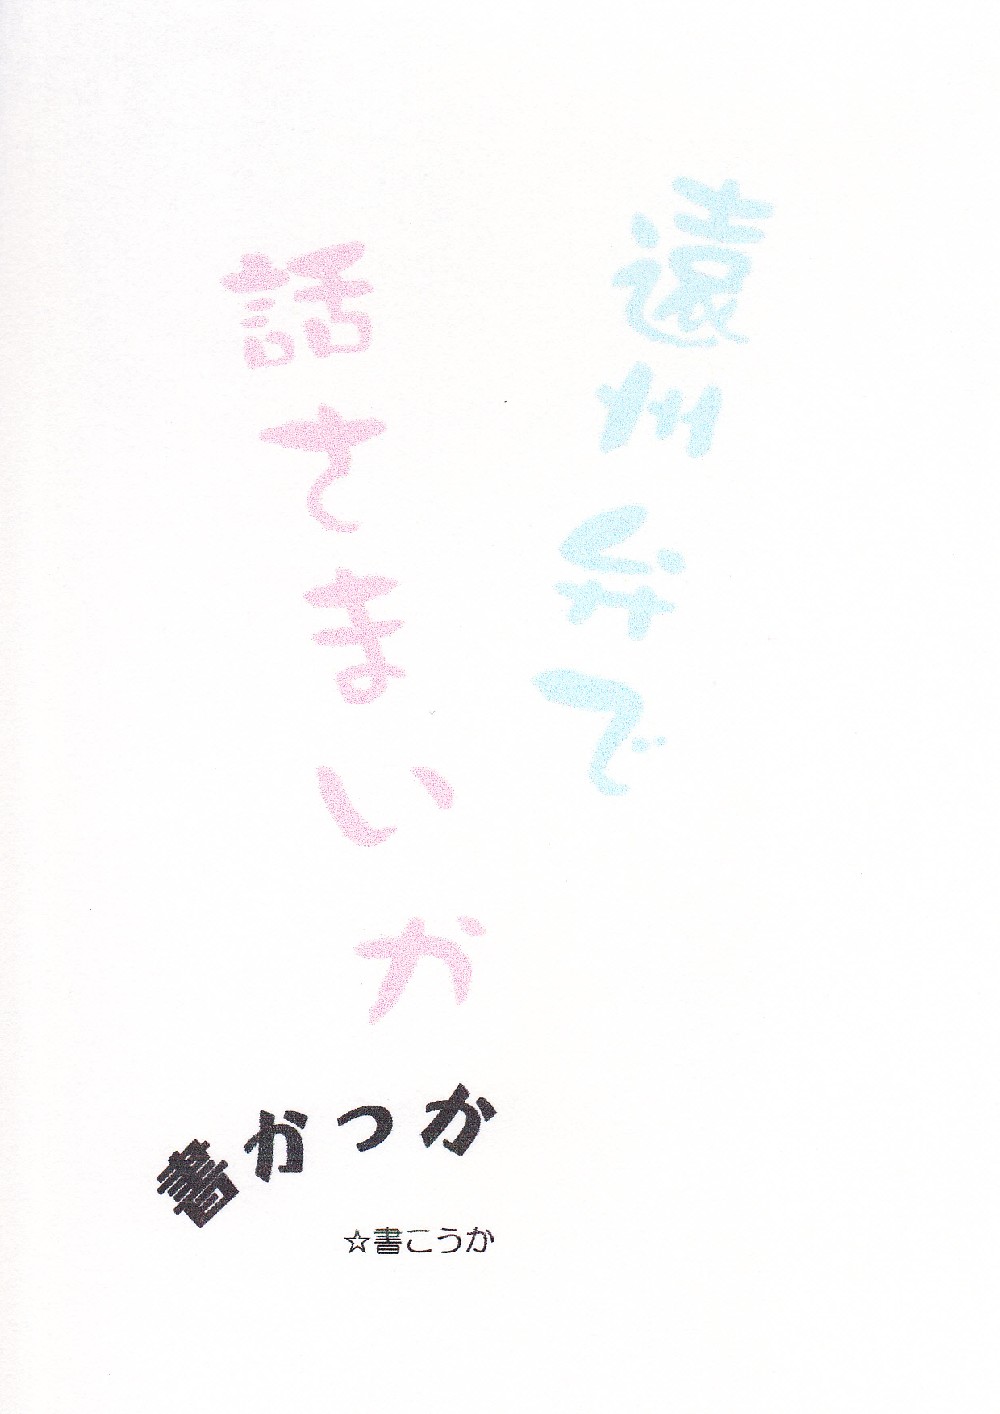 遠州弁で
話さまいか
書かっか
☆書こうか